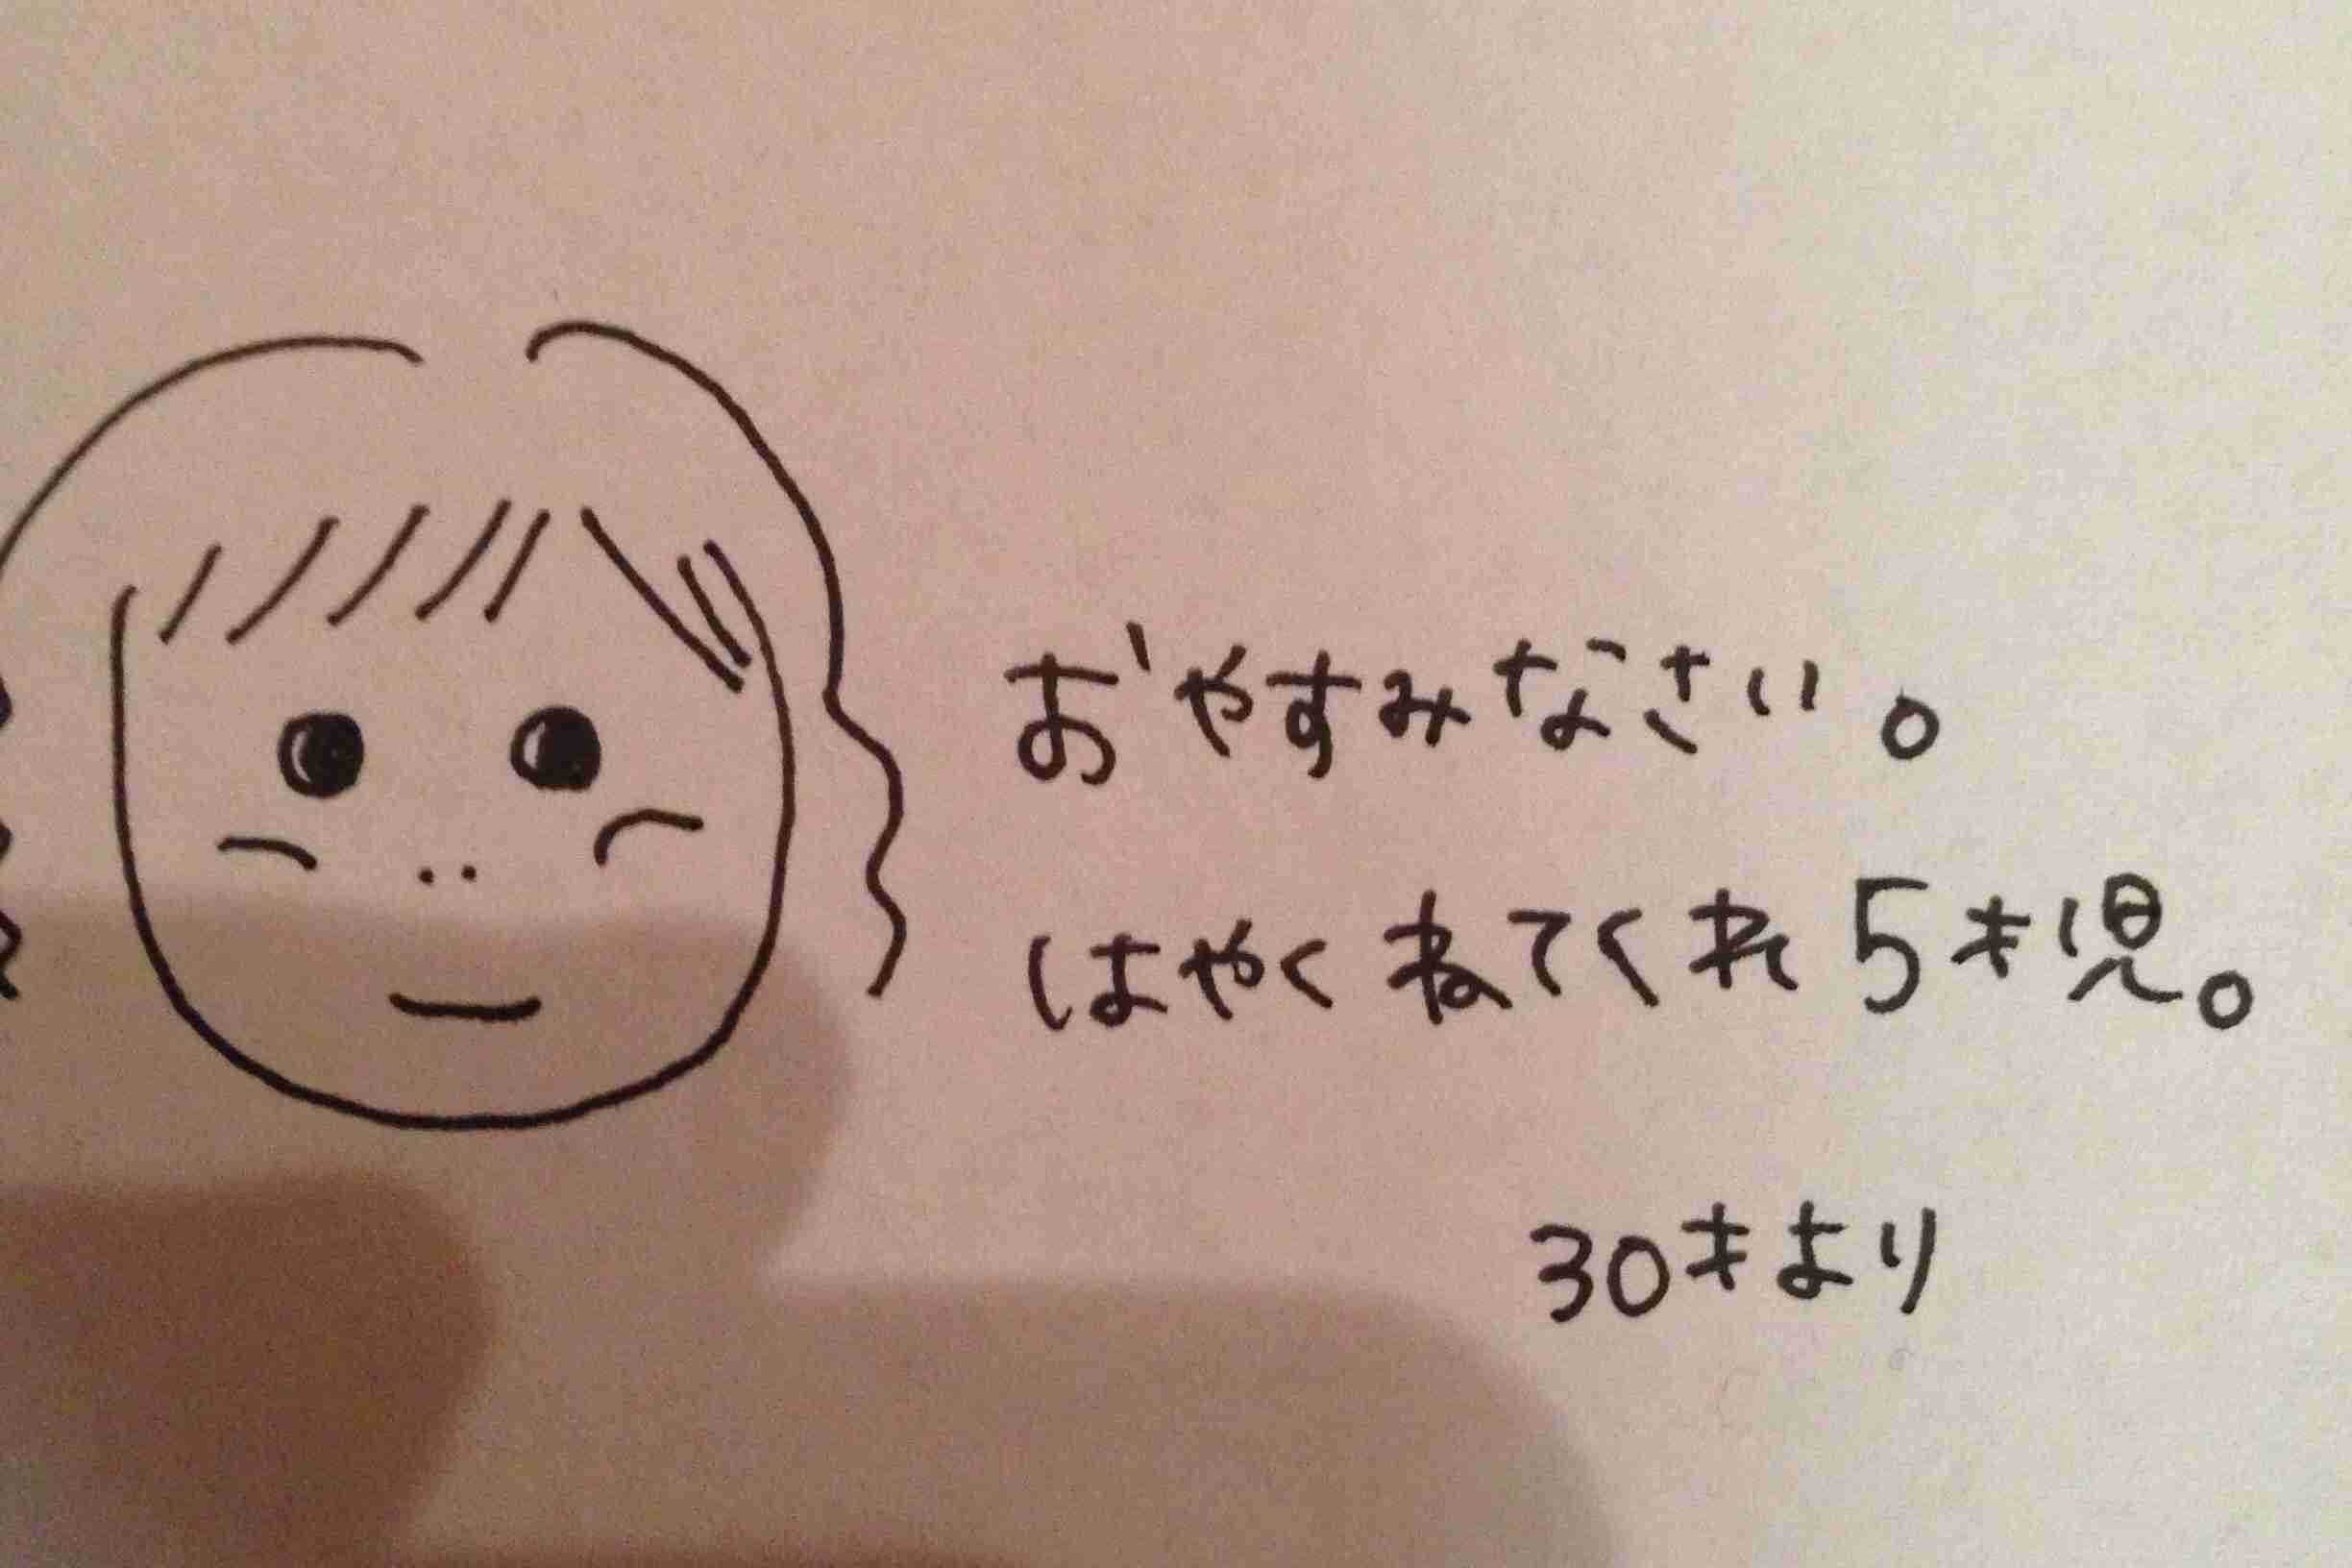 おやすみなさい。
はやくねてくれ5才児。
30才より